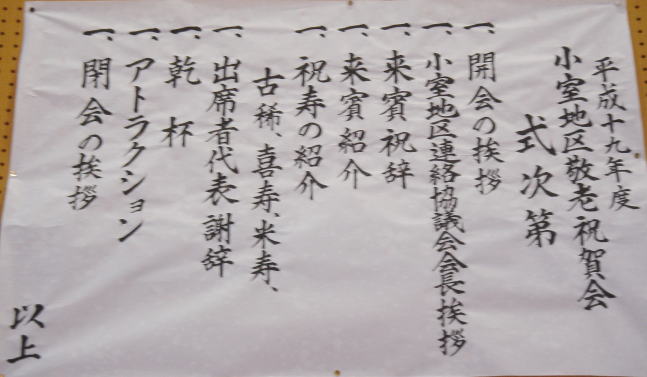 平成十九年度
小室地区敬老祝賀会
式次第
一、開会の挨拶
一、小室地区連絡協議会会長挨拶
一、来賓祝辞
一、来賓紹介
一、祝寿の紹介
古稀、喜寿、米寿、
一、出席者代表謝辞
一、乾杯
一、アトラクション
一、閉会の挨拶
以上